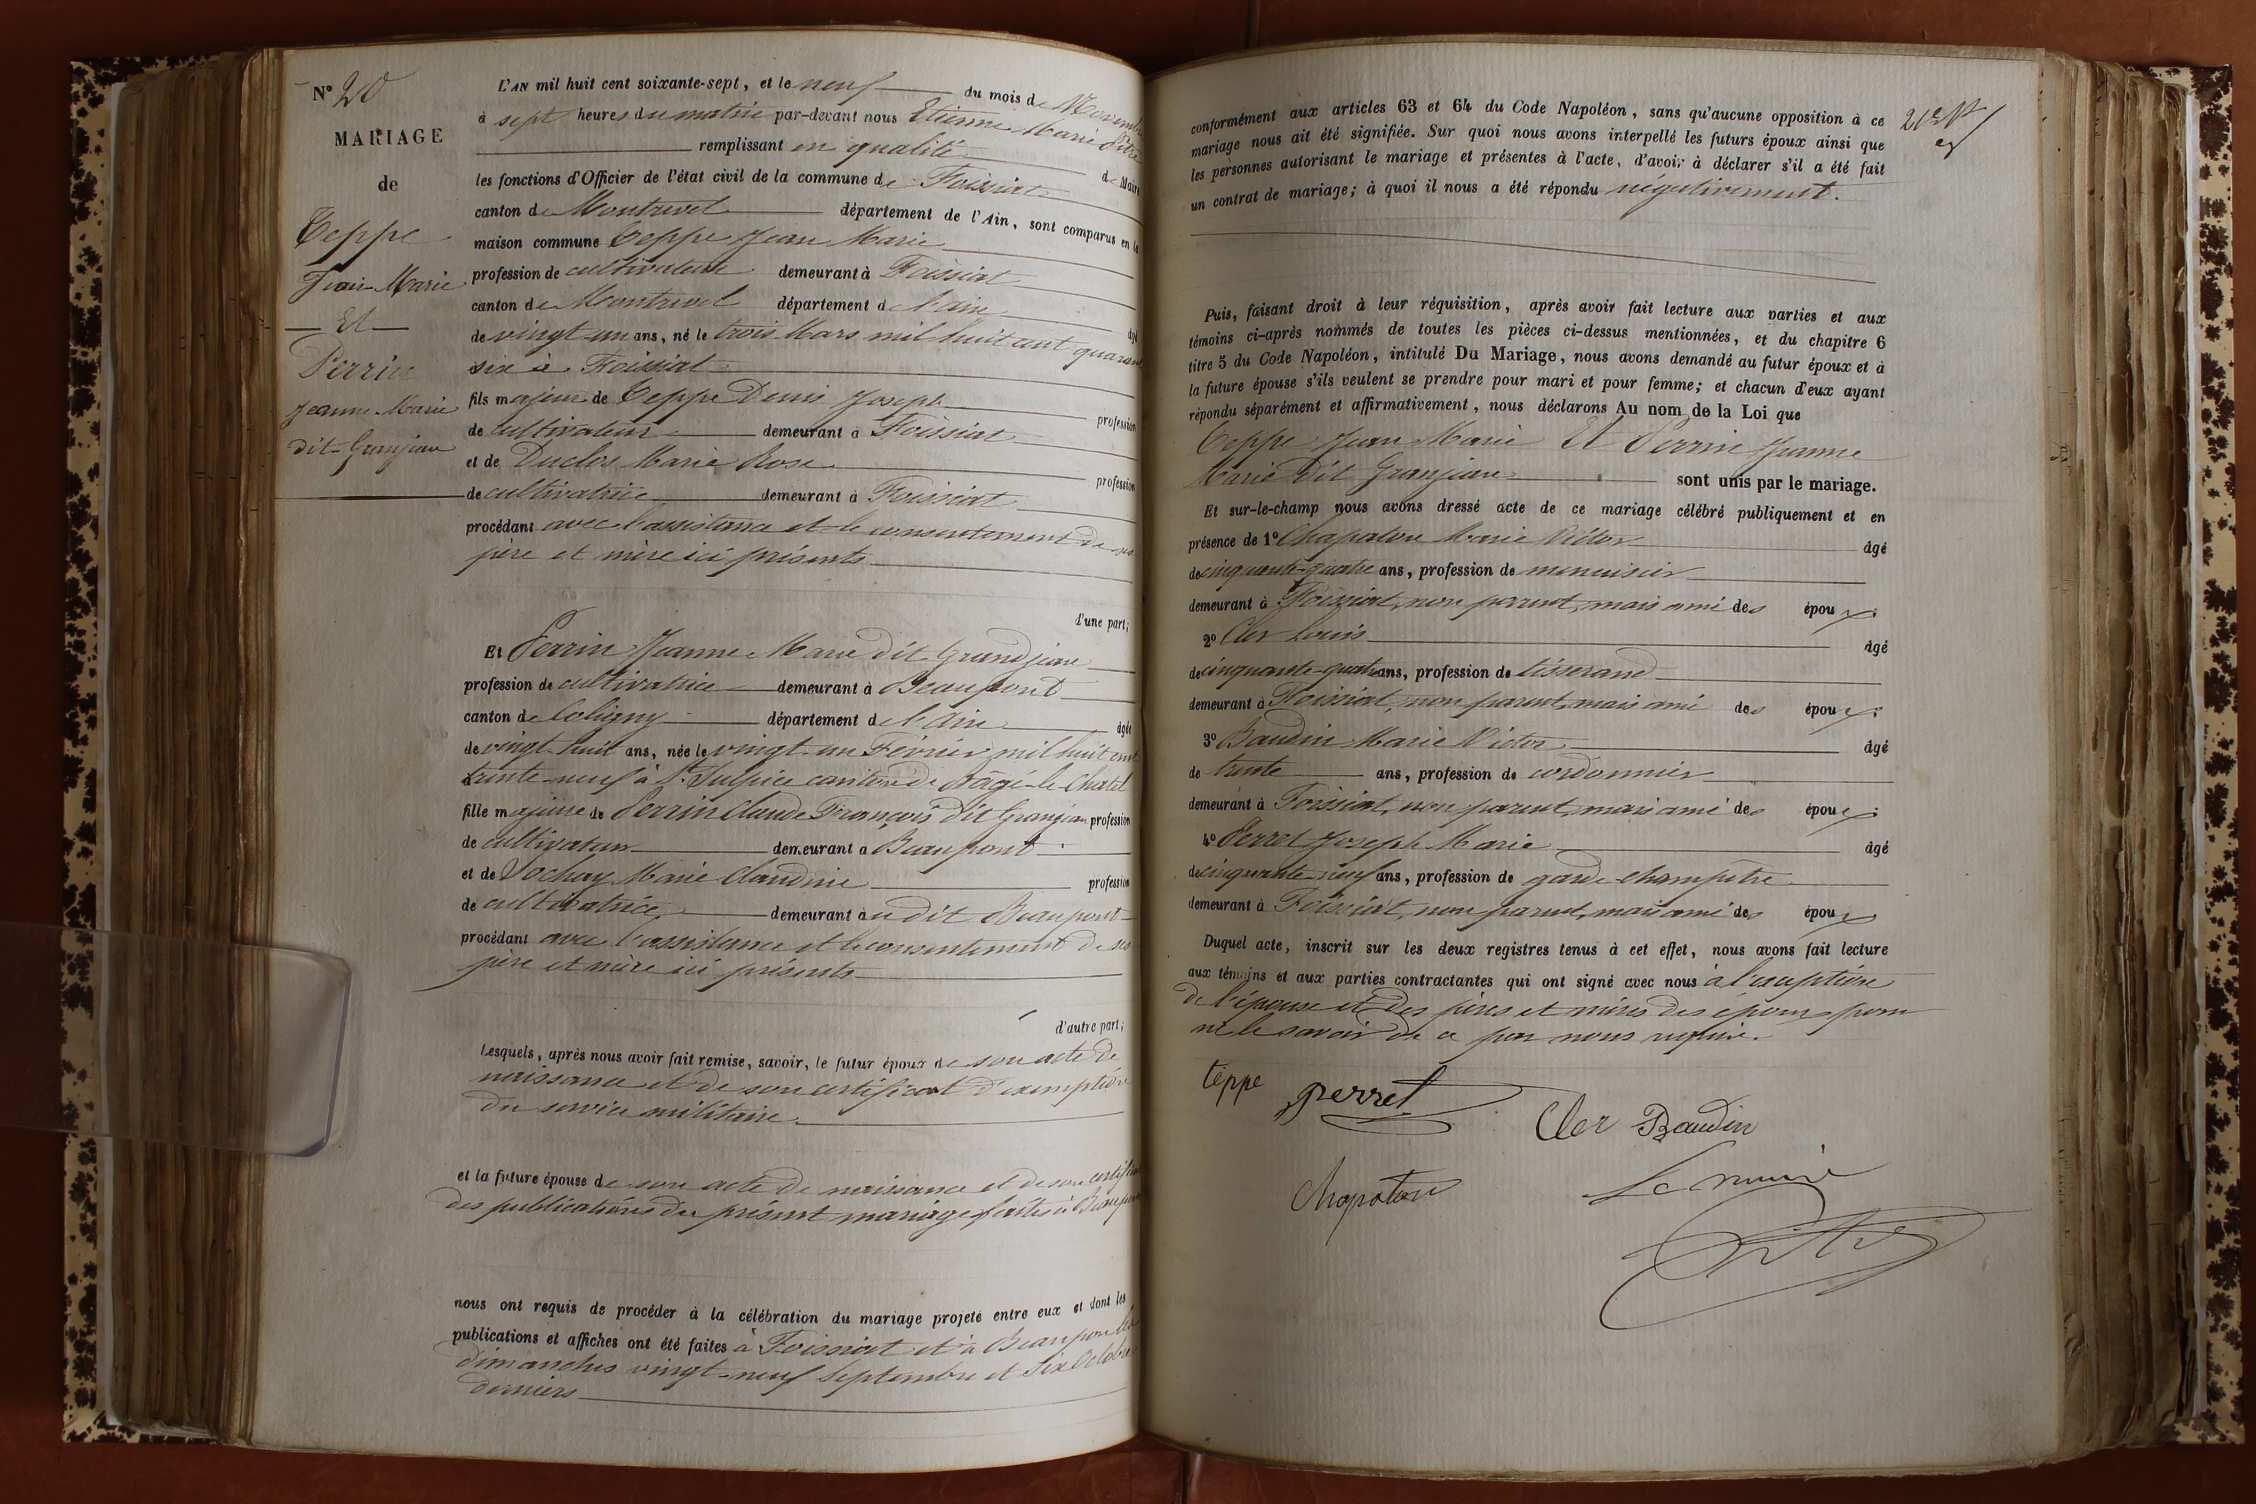 N° 20
MARIAGE
de
Teppe
Jean-Marie
Et
Perrin
Jeanne-Marie
dit-Granjean
L'AN mil huit cent soixante-sept, et le neuf du mois de Novembre
à sept heures du matin par-devant nous Etienne Marie Pitre
remplissant en qualité de Maire
les fonctions d'Officier de l'état civil de la commune de Foissiat
canton de Montrevel département de l'Ain, sont comparus en la
maison commune Teppe Jean Marie
profession de cultivateur demeurant à Foissiat
canton de Montrevel département de l'ain âgé
de vingt-un ans, né le trois Mars mil huit cent quarante
six à Foissiat
fils majeur de Teppe Denis Joseph profession
de cultivateur demeurant à Foissiat
et de Duclos Marie Rose profession
de cultivatrice demeurant à Foissiat
procédant avec l'assistance et le consentement de ses
père et mère ici présents
d'une part;
Et Perrin Jeanne Marie dit Grandjean
profession de cultivatrice demeurant à Beaupont
canton de Coligny département de l'Ain âgée
de vingt-huit ans, née le vingt-un Février mil huit cent
trente-neuf à St Sulpice canton de Bâgé-le-Chatel
fille majeure de Perrin Claude François dit Granjean profession
de cultivateur demeurant à Beaupont
et de Sochay Marie Claudine profession
de cultivatrice, demeurant au dit Beaupont
procédant avec l'assistance et le consentement de ses
père et mère ici présents
d'autre part;
Lesquels, après nous avoir fait remise, savoir, le futur époux de son acte de
naissance et de son certificat d'exemption
du service militaire
et la future épouse de son acte de naissance et de son certificat
des publications du présent mariage faites à Beaupont
nous ont requis de procéder à la célébration du mariage projeté entre eux et dont les
publications et affiches ont été faites à Foissiat et à Beaupont les
dimanches vingt-neuf Septembre et Six Octobre
derniers
conformément aux articles 63 et 64 du Code Napoléon, sans qu'aucune opposition à ce
mariage nous ait été signifiée. Sur quoi nous avons interpellé les futurs époux ainsi que
les personnes autorisant le mariage et présentes à l'acte, d'avoir à déclarer s'il a été fait
un contrat de mariage; à quoi il nous a été répondu négativement.
Puis, faisant droit à leur réquisition, après avoir fait lecture aux parties et aux
témoins ci-après nommés de toutes les pièces ci-dessus mentionnées, et du chapitre 6
titre 5 du Code Napoléon, intitulé Du Mariage, nous avons demandé au futur époux et à
la future épouse s'ils veulent se prendre pour mari et pour femme; et chacun d'eux ayant
répondu séparément et affirmativement, nous déclarons Au nom de la Loi que
Teppe Jean Marie Et Perrin Jeanne
Marie Dit Granjean sont unis par le mariage.
Et sur-le-champ nous avons dressé acte de ce mariage célébré publiquement et en
présence de 1° Chapaton Marie Victor âgé
de cinquante-quatre ans, profession de menuisier
demeurant à Foissiat, non parent, mais ami des époux;
2° Cler Louis âgé
de cinquante-quatre ans, profession de tisserand
demeurant à Foissiat, non parent, mais ami des époux;
3° Baudin Marie Victor âgé
de trente ans, profession de cordonnier
demeurant à Foissiat, non parent, mais ami des époux;
4° Perret Joseph Marie âgé
de cinquante-neuf ans, profession de garde-champêtre
demeurant à Foissiat, non parent, mais ami des époux
Duquel acte, inscrit sur les deux registres tenus à cet effet, nous avons fait lecture
aux témoins et aux parties contractantes qui ont signé avec nous à l'exception
de l'épouse et des pères et mères des époux pour
ne le savoir de ce par nous requis.
teppe perret
Cler Baudin
Chapaton
Le maire
Pitre